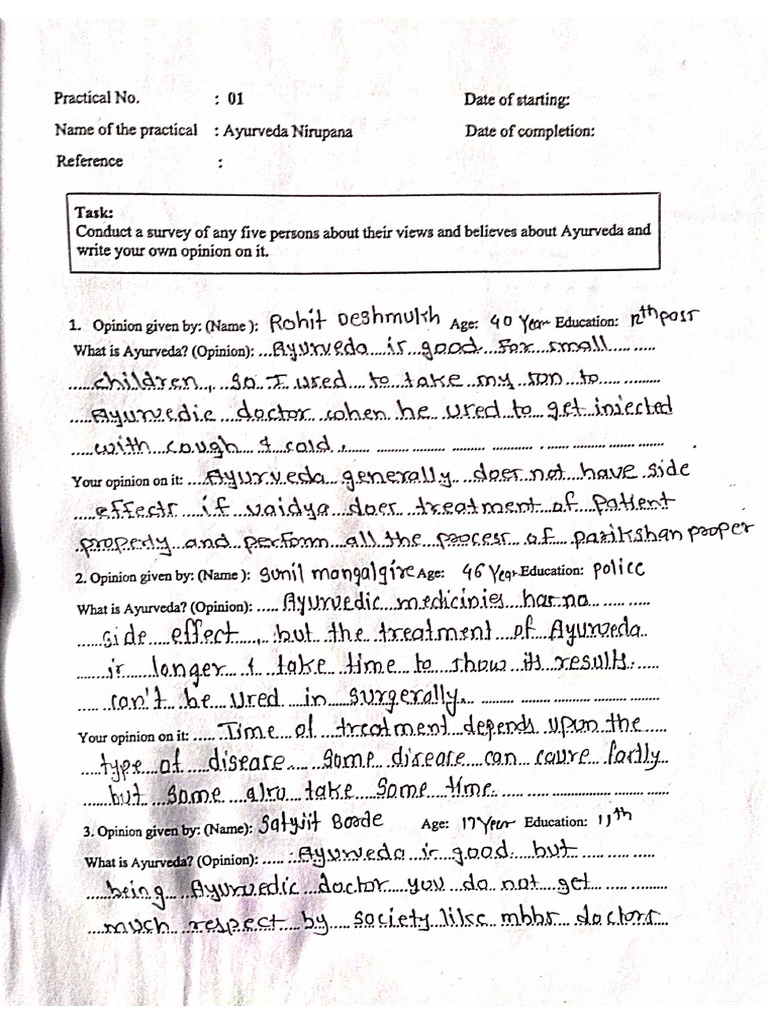 Practical No. : 01 Date of starting:
Name of the practical : Ayurveda Nirupana Date of completion:
Reference :
Task:
Conduct a survey of any five persons about their views and believes about Ayurveda and
write your own opinion on it.
1. Opinion given by: (Name ): Rohit Deshmukh Age: 40 Year Education: 12th pass
What is Ayurveda? (Opinion): Ayurveda is good for small
children, so I used to take my son to
Ayurvedic doctor when he used to get injected
with cough & cold.
Your opinion on it: Ayurveda generally does not have side
effects if vaidya does treatment of Patient
properly and perform all the process of parikshan proper
2. Opinion given by: (Name ): Sunil mangalgire Age: 46 Year Education: police
What is Ayurveda? (Opinion): Ayurvedic medicinies has no
side effect, but the treatment of Ayurveda
is longer & take time to show its results.
can't be used in surgerally.
Your opinion on it: Time of treatment depends upun the
type of disease some disease can caure fastly
but some also take some time.
3. Opinion given by: (Name): Satyjit Borde Age: 17 Year Education: 11th
What is Ayurveda? (Opinion): Ayurveda is good but
being Ayurvedic doctor you do not get
much respect by society like mbbs doctors